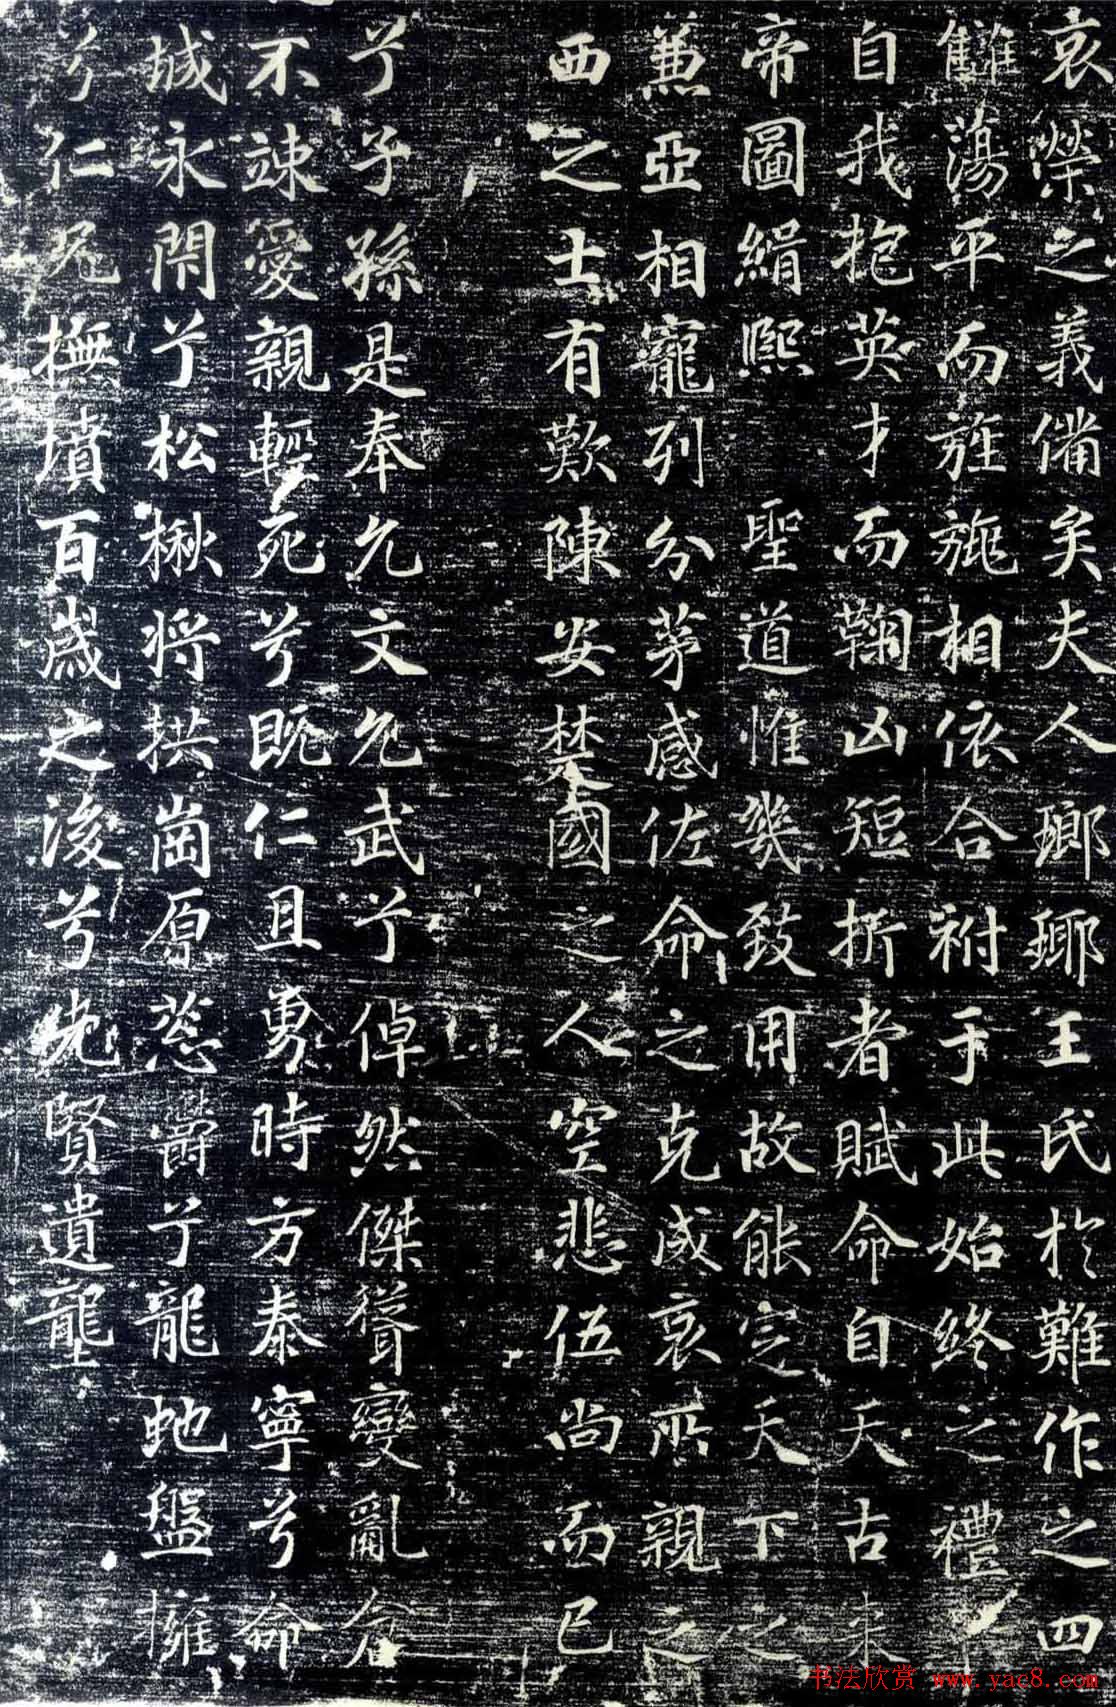 哀榮之義備矣夫人瑯琊王氏於難作之四
讎蕩平而旌旐相依合祔于此始終之禮
自我抱英才而鞠凶短折者賦命自天古未
帝圖緝熙 聖道惟幾致用故能定天下之
兼亞相寵列分茅感佐命之克成哀所親之
西之士有歎陳安楚國之人空悲伍尚而已
兮子孫是奉允文允武兮倬然傑聳變亂倉
不竦愛親輕死兮既仁且勇時方泰寧兮命
城永閉兮松楸將拱崗原葱鬱兮龍虵盤擁
兮仁兄撫墳百歲之後兮先賢遺壟
书法欣赏 www.yac8.com